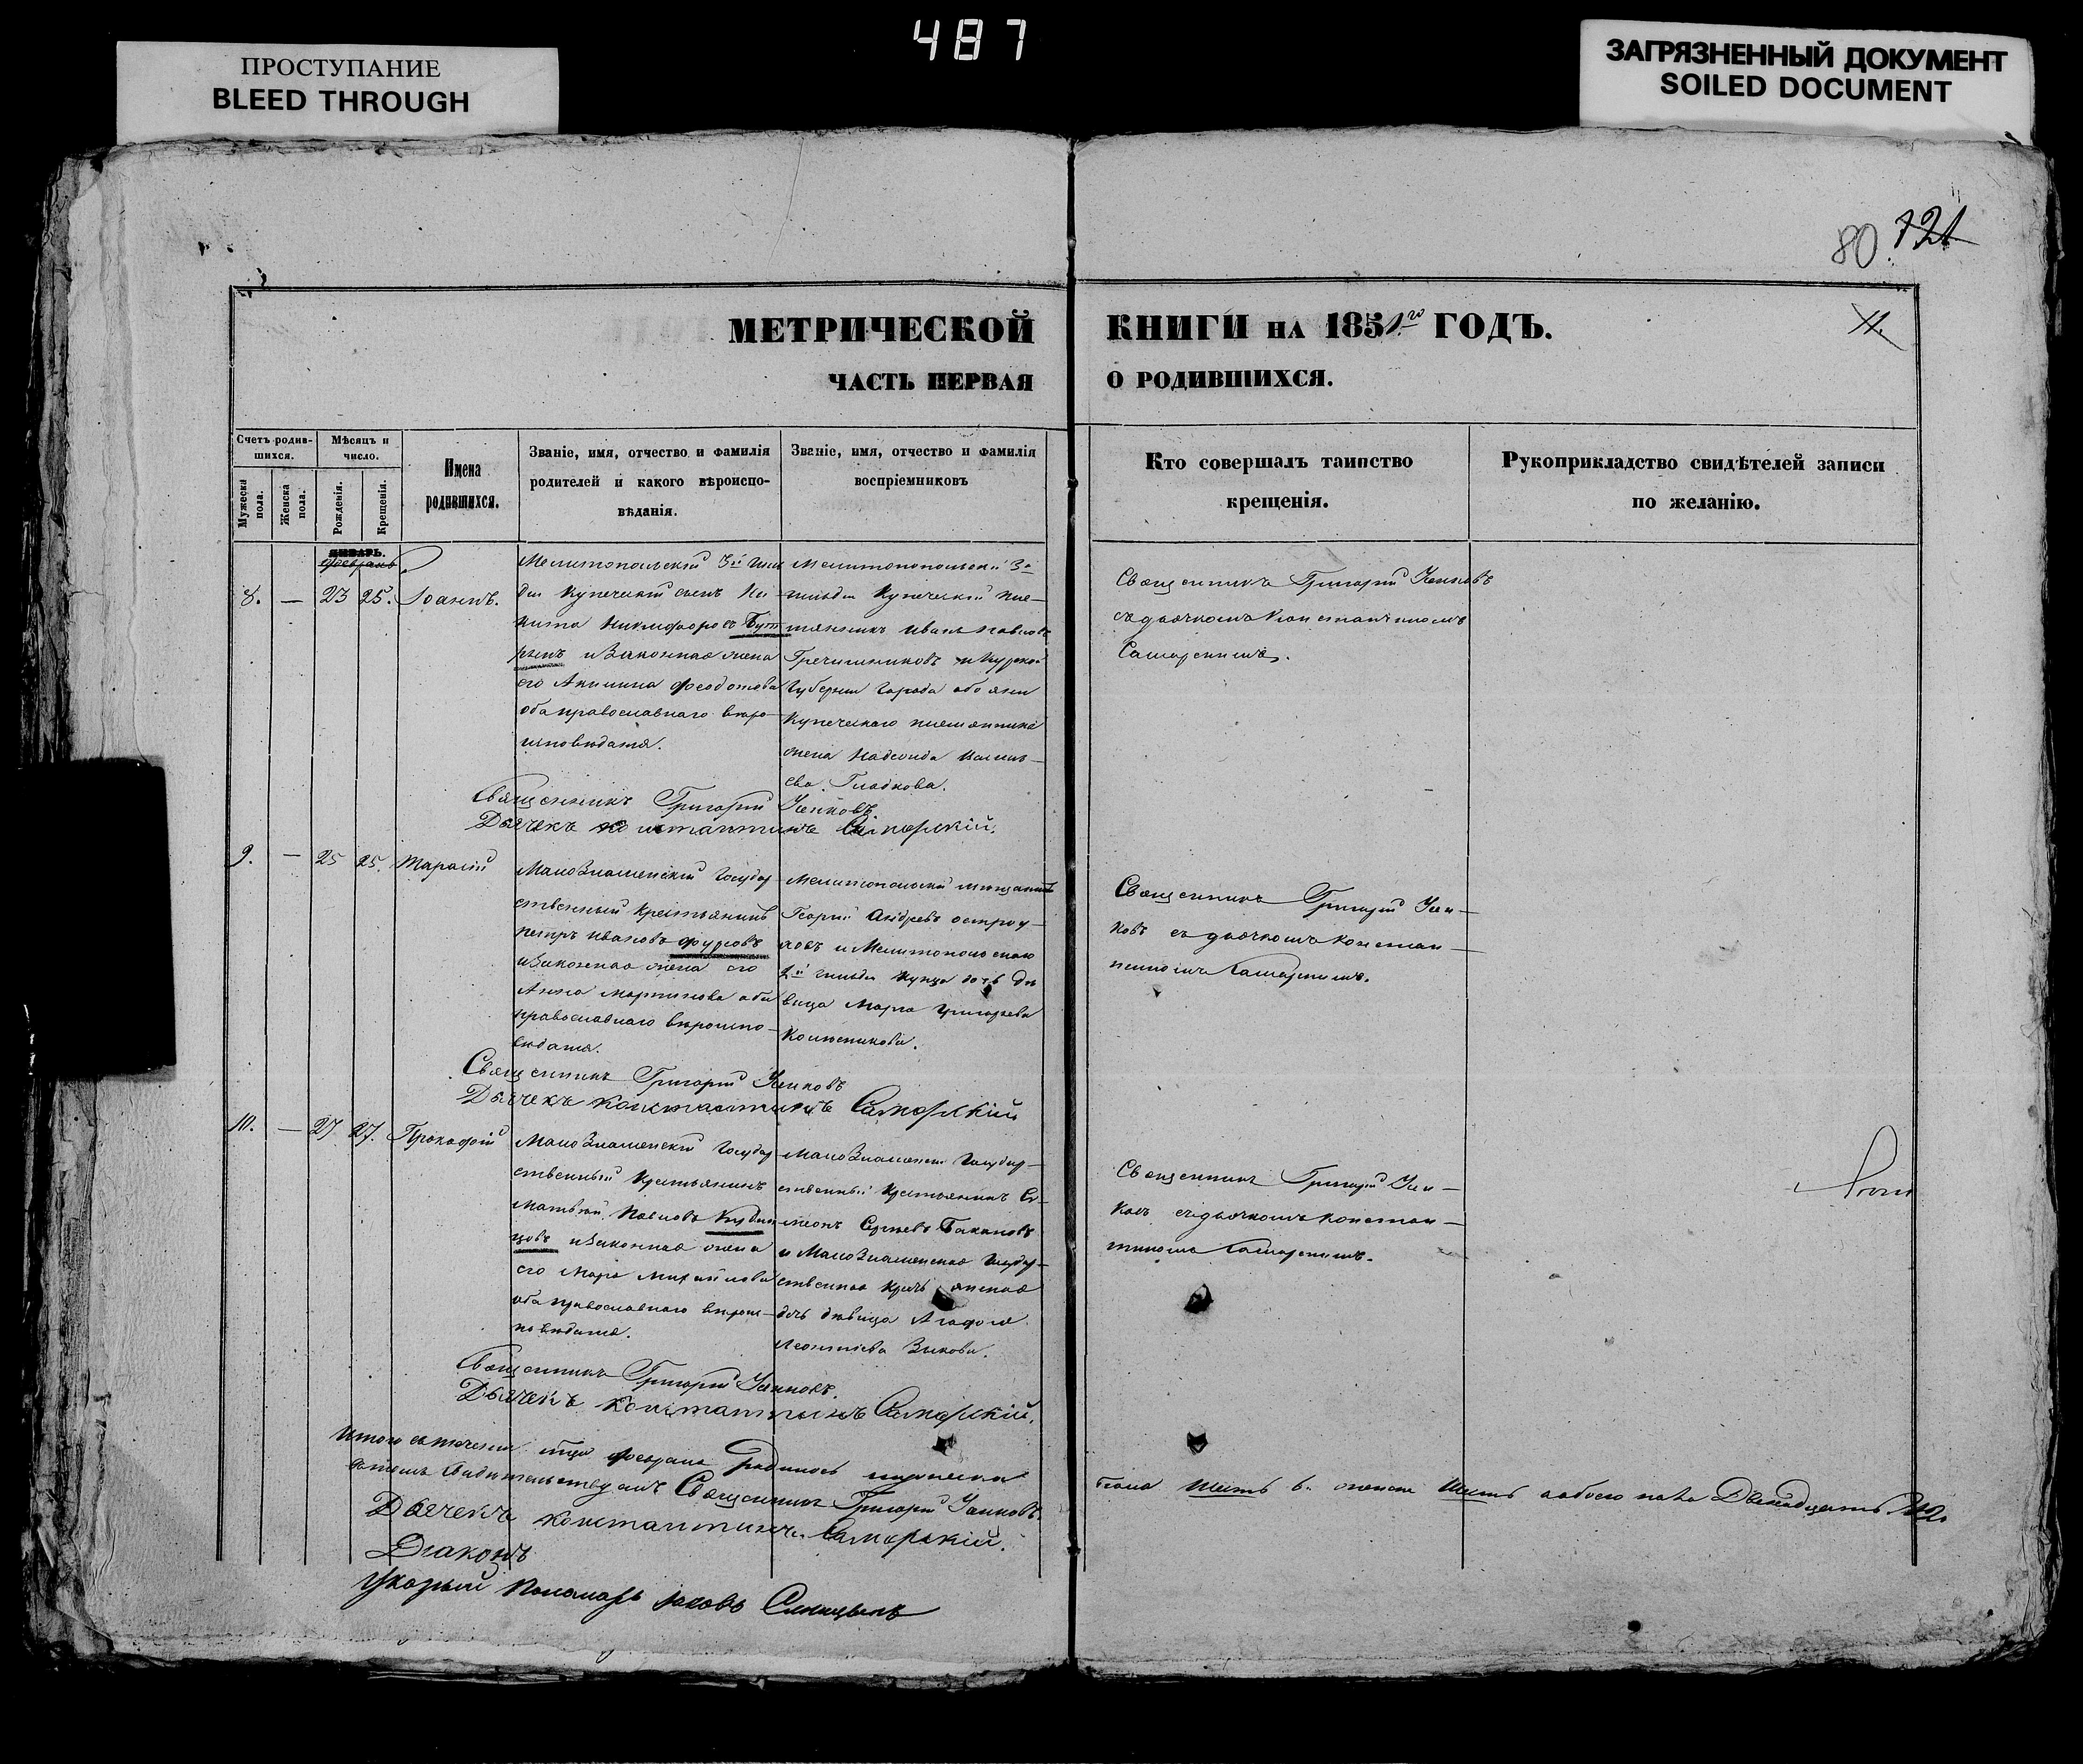 487
ПРОСТУПАНИЕ
BLEED THROUGH
ЗАГРЯЗНЕННЫЙ ДОКУМЕНТ
SOILED DOCUMENT
80. 721
МЕТРИЧЕСКОЙ КНИГИ НА 1851го ГОДЪ.
11.
ЧАСТЬ ПЕРВАЯ О РОДИВШИХСЯ.
Счетъ родив-
шихся.
Мужеска
пола.
Женска
пола.
Мѣсяцъ и
число.
Рожденія.
Крещенія.
Имена
родившихся.
Званіе, имя, отчество и фамилія
родителей и какого вѣроиспо-
вѣданія.
Званіе, имя, отчество и фамилія
воспріемниковъ
Кто совершалъ таинство
крещенія.
Рукоприкладство свидѣтелей записи
по желанію.
ЯНВАРЬ.
февраль
8. — 23 25. Іоаннъ.
Мелитопольскій 3й гиль
діи купеческій сынъ Ни
кита Никифоровъ Бут
рынъ и законная жена
его Акилина Феодотова
оба православнаго вѣро-
исповѣданія.
гильдіи купеческій пле-
мянникъ Иванъ Павловъ
Гречишниковъ и Курской
губерніи города Обояни
купеческаго племянника
жена Надежда Василь-
ева Гладкова.
Священникъ Григорій
съ дьячкомъ Константиномъ
Самарскимъ.
Священникъ Григорій
Дьячекъ Константинъ Самарскій.
9. — 25 25. Тарасій
Малознаменскій государ
ственный крестьянинъ
Петръ Ивановъ Фурсовъ
и законная жена его
Анна Мартинова оба
православнаго вѣроиспо-
вѣданія.
Мелитопольскій мѣщанинъ
Георгій Андреевъ Остроу-
ховъ и Мелитопольскаго
2й гильдіи купца дочь дѣ
вица Марѳа Григорьева
Священникъ Григорій
ковъ съ дьячкомъ Констан-
тиномъ Самарскимъ.
Священникъ Григорій
Дьячекъ Константинъ Самарскій
10. — 27 27. Прокофій
Малознаменскій государ
ственный крестьянинъ
Матвѣй Павловъ
цовъ и законная жена
его Марія Михайлова
оба православнаго вѣроис-
повѣданія.
Малознаменскій государ-
ственный крестьянинъ Си-
меонъ Сергѣевъ Бакановъ
и Малознаменская государ-
ственная крестьянская
дочь дѣвица Агафія
Леонтіева Зыкова.
Священникъ Григорій
ковъ съ дьячкомъ Констан-
тиномъ Самарскимъ.
Священникъ Григорій
Дьячекъ Константинъ Самарскій.
Итого въ теченіи мца февраля родилось мужеска пола шесть 6. женска шесть а обоего пола Двенадцать 12.
въ чемъ свидѣтельствуемъ Священникъ Григорій
Дьячекъ Константинъ Самарскій.
Діаконъ
Указный Пономарь Іаковъ Синицынъ